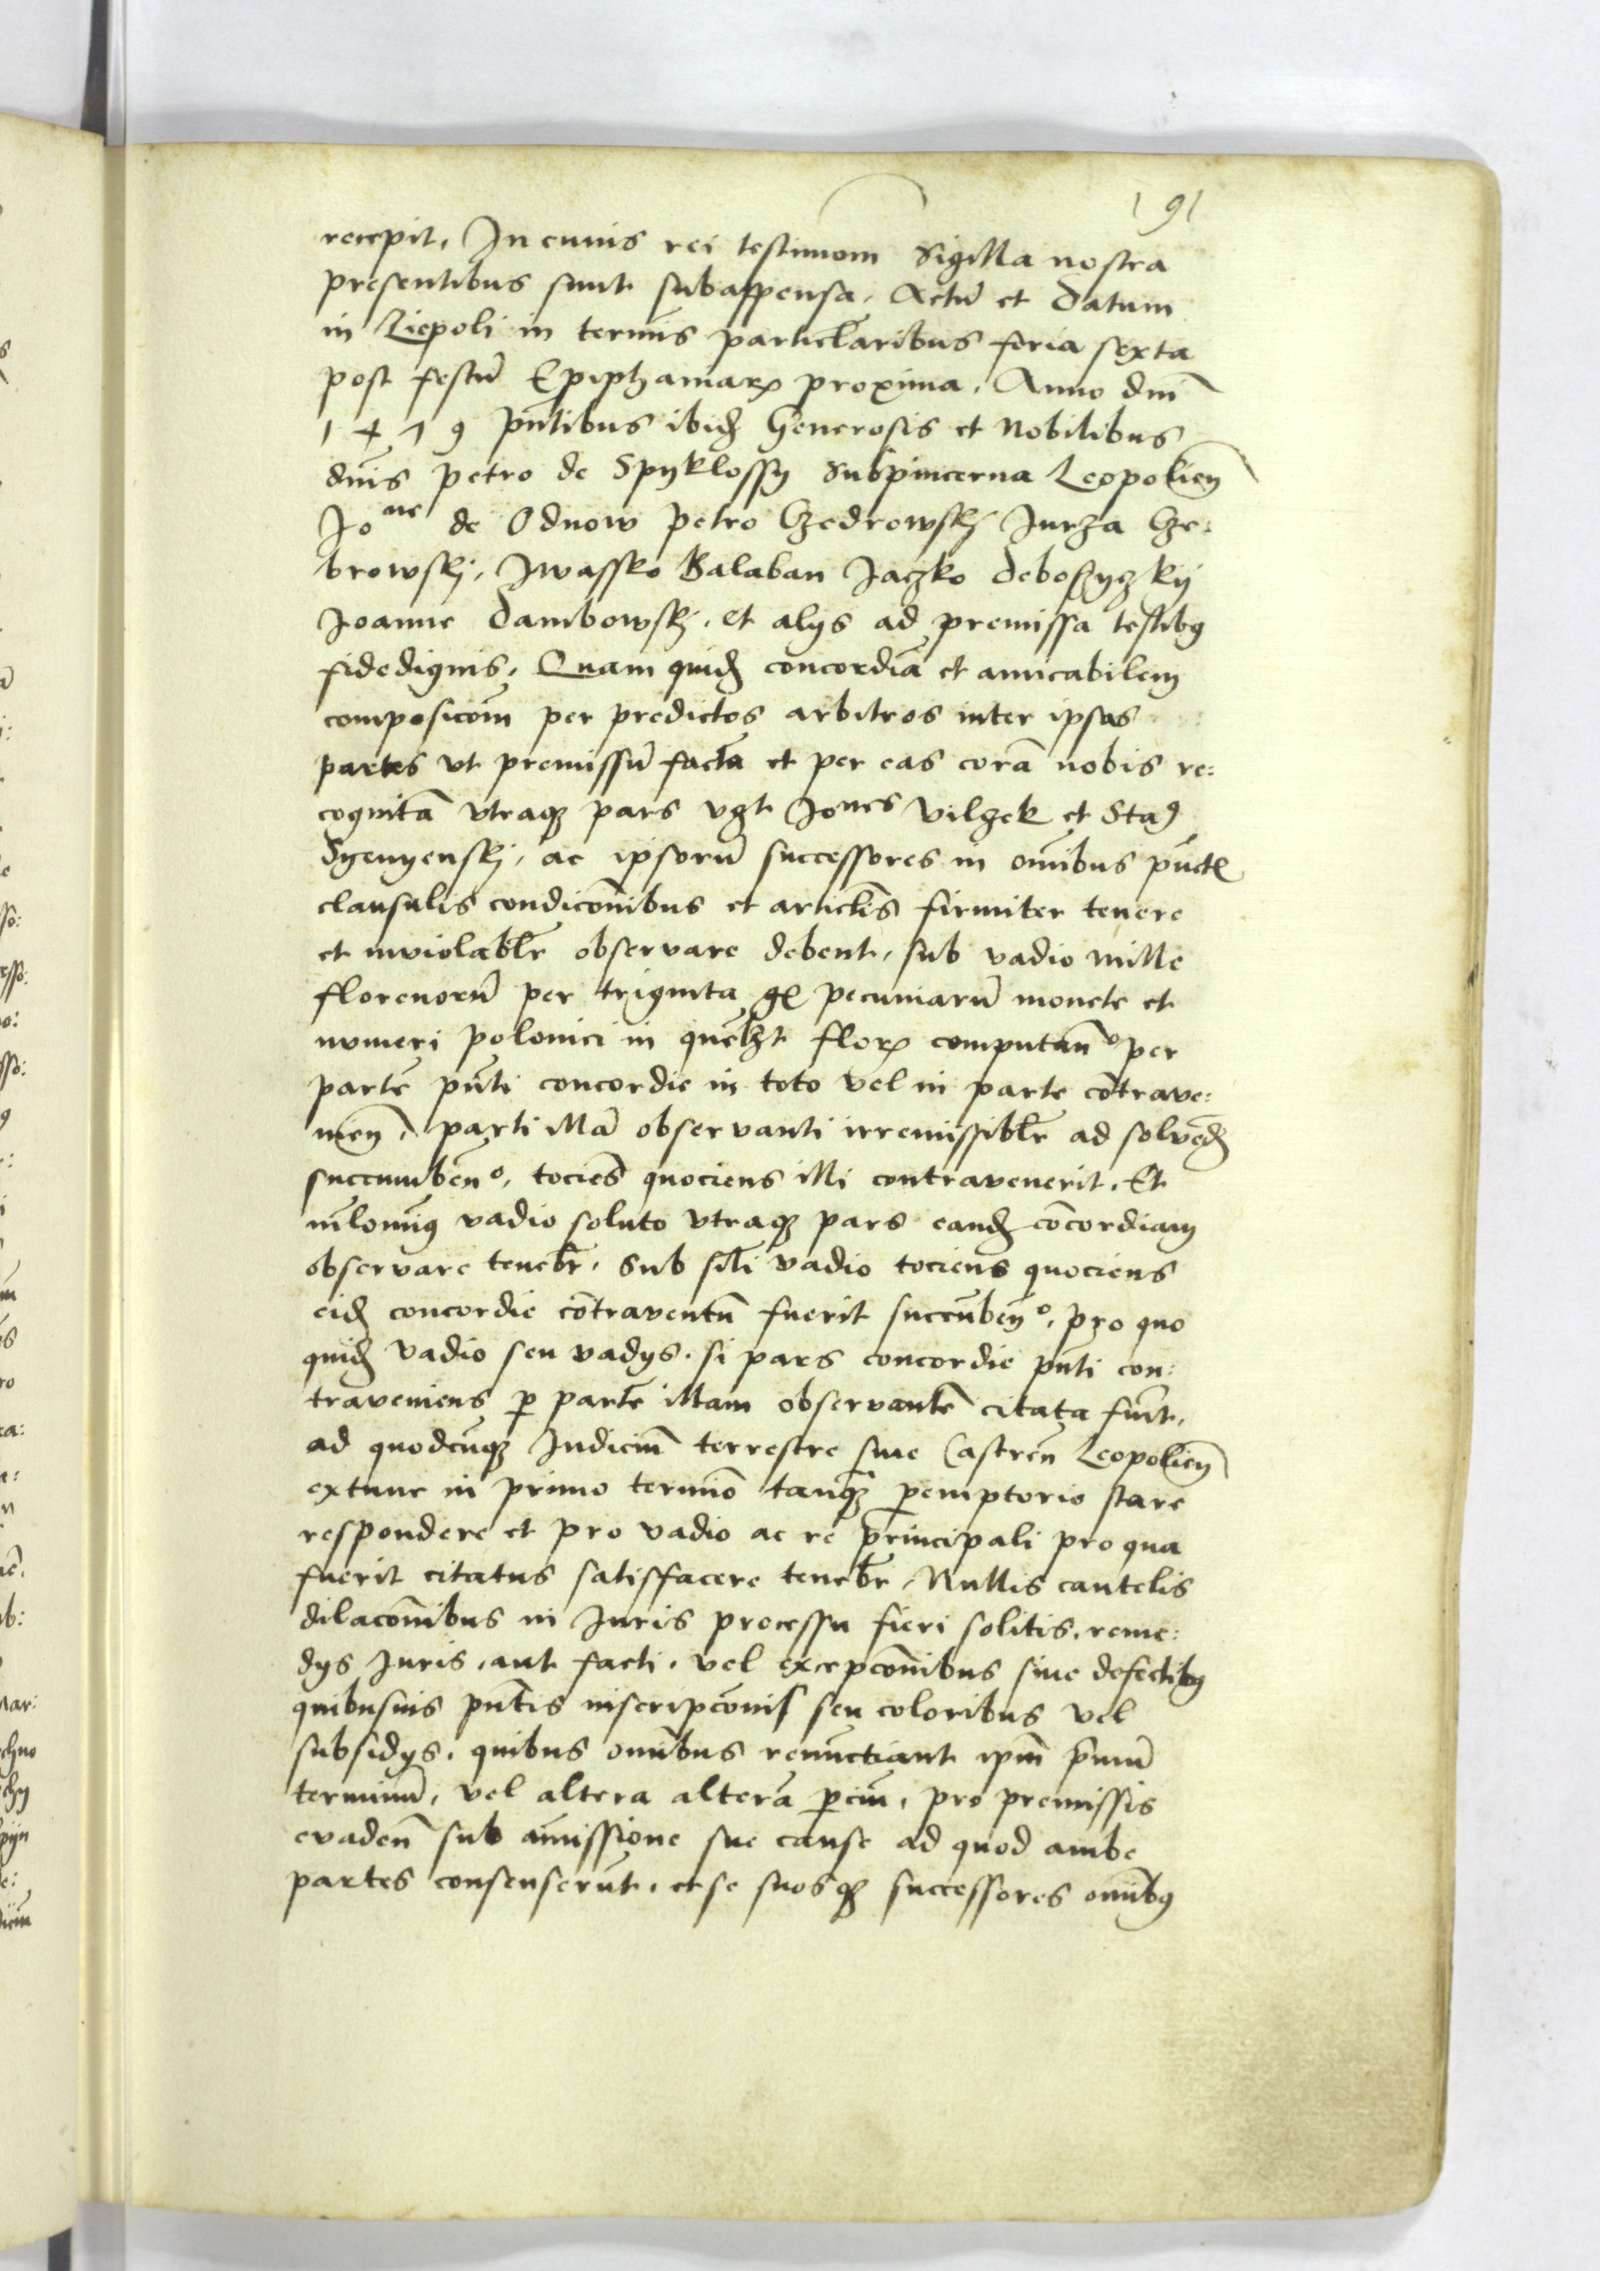 191
recepit, In cuius rei testimoniū Sigilla nostra
presentibus sunt subappensa. Actū et Datum
in Liepoli in terminis particlaribus feria sexta
post festū Epiphaniarꝝ proxima. Anno dnī
1479 pntibus ibidē Generosis et Nobilibus
dnis Petro de Spyklossy Subpincerna Leopolieñ
Jone de Odnow Petro Czedrowskj Jurza Cze:
browskj, Jwassko Balaban Jaczko
Joanne Dambowskj. et alys ad premissa testibꝰ
fidedignis, Quam quidē concordiā et amicabilem
composicoēm per predictos arbitros inter ipsas
partes vt premissū factā et per eas corā nobis re:
cognitā vtraqꝫ pars vꝫt Jones Vilzek et Sta
Syenyenskj, ac ipsorū successores in oīnibus puct
clausulis condicoīnibus et articlis firmiter tenere
et inviolablr observare debent, sub vadio mille
florenorū per triginta gꝭ pecuniarū monete et
numeri polonici in quēlꝫt florꝝ computañº per
partē pñti concordie in toto vel in parte cōtrave:
nieñ, parti illā observanti irremissiblr ad solvēdꝫ
succumbeñº, tociēs quociens illi contravenerit. Et
nīlominꝰ vadio soluto vtraqꝫ pars eandē cōcordiam
observare tenebr̄, sub sili vadio tociens quociens
eidē concordie cōtraventū fuerit succūbeñº, pro quo
quidē vadio seu vadys. si pars concordie pñti con:
traveniens ꝑ partē illam observantē citata fuit,
ad quodcūqꝫ Judiciū terrestre sive Castreñ Leopolieñ
extunc in primo termiō tanqꝫ ꝑemptorio stare
respondere et pro vadio ac re principali pro qua
fuerit citatus satisfacere tenebr̄, Nullis cautelis
dilacoīnibus in Juris processu fieri solitis, reme:
dys Juris, aut facti, vel excepcoīnibus sive defectibꝰ
quibusvis pñtis inscripcoīnis seu coloribus vel
subsidys, quibus oīnibus renūctiant ipm̄ prīmū
terminū, vel altera alterā ꝑciū, pro premissis
evadeñ sub āmissione sue cause ad quod ambe
partes consenserūt, et se suosqꝫ successores oīnibꝰ